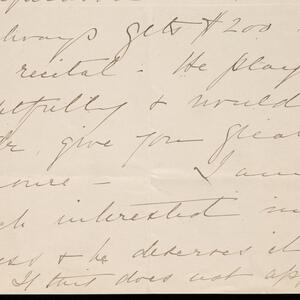 always gets $200
recital - He play
tfully & would
give you great
- I am
interested in
ess & he deserves it
If this does not ap